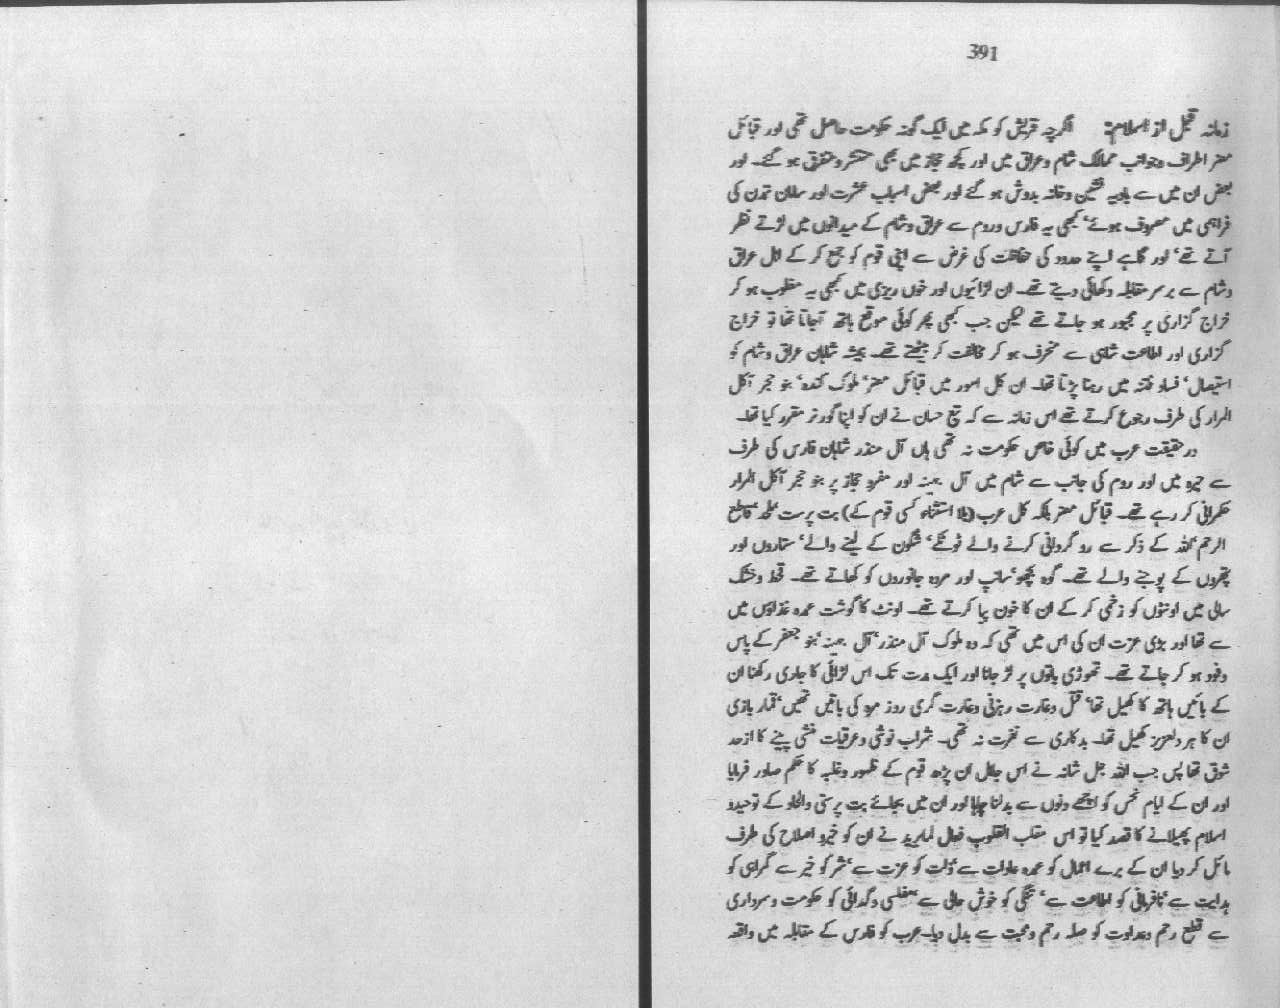 391
زمانہ قبل از اسلام: اگرچہ قریش کو مکہ میں ایک گونہ حکومت حاصل تھی اور قبائل
مضر اطراف وجوانب ممالک شام وعراق میں اور کچھ حجاز میں بھی منتشر ومتفرق ہو گئے۔ اور
بعض ان میں سے بادیہ نشین وخانہ بدوش ہو گئے اور بعض اسباب عشرت اور سامان تمدن کی
فراہمی میں مصروف ہوئے‘ کبھی یہ فارس وروم سے عراق وشام کے میدانوں میں لڑتے نظر
آتے تھے‘ اور گاہے اپنے حدود کی حفاظت کی غرض سے اپنی قوم کو جمع کر کے اہل عراق
وشام سے برسر مقابلہ دکھائی دیتے تھے۔ ان لڑائیوں اور خوں ریزی میں کبھی یہ مغلوب ہو کر
خراج گزاری پر مجبور ہو جاتے تھے لیکن جب کبھی پھر کوئی موقع ہاتھ آجاتا تھا تو خراج
گزاری اور اطاعت شاہی سے منحرف ہو کر مخالفت کر بیٹھتے تھے۔ ہمیشہ شاہان عراق وشام کو
استیصال‘ فساد فتنہ میں رہنا پڑتا تھا۔ ان کل امور میں قبائل مضر‘ ملوک کندہ‘ بنو حجر آکل
المرار کی طرف رجوع کرتے تھے اس زمانہ سے کہ تبع حسان نے ان کو اپنا گورنر مقرر کیا تھا۔
درحقیقت عرب میں کوئی خاص حکومت نہ تھی ہاں آل منذر شاہان فارس کی طرف
سے حیرہ میں اور روم کی جانب سے شام میں آل جہنہ اور مضرو حجاز پر بنو حجر آکل المرار
حکمرانی کر رہے تھے۔ قبائل مضر بلکہ کل عرب (بلا استثناء کسی قوم کے) بت پرست‘ ملحد‘ قاطع
الرحم‘ اللہ کے ذکر سے رو گردانی کرنے والے ٹوٹکے‘ شگون کے لینے والے‘ ستاروں اور
پتھروں کے پوجنے والے تھے۔ گوہ بچھو‘ سانپ اور مردہ جانوروں کو کھاتے تھے۔ قحط وخشک
سالی میں اونٹوں کو زخمی کر کے ان کا خون پیا کرتے تھے۔ اونٹ کا گوشت عمدہ غذاؤں میں
سے تھا اور بڑی عزت ان کی اس میں تھی کہ وہ ملوک آل منذر‘ آل جہنہ‘ بنو جعفر کے پاس
وفود ہو کر جاتے تھے۔ تھوڑی باتوں پر لڑ جانا اور ایک مدت تک اس لڑائی کا جاری رکھنا ان
کے بائیں ہاتھ کا کھیل تھا‘ قتل وغارت رہزنی وغارت گری روز مرہ کی باتیں تھیں‘ قمار بازی
ان کا ہر دلعزیز کھیل تھا۔ بدکاری سے نفرت نہ تھی۔ شراب نوشی وعرقیات منشی پینے کا ازحد
شوق تھا پس جب اللہ جل شانہ نے اس جاہل ان پڑھ قوم کے ظہور وغلبہ کا حکم صادر فرمایا
اور ان کے ایام نحس کو اچھے دنوں سے بدلنا چاہا اور ان میں بجائے بت پرستی والحاد کے توحیدو
اسلام پھیلانے کا قصد کیا تو اس مقلب القلوب فعال لمایرید نے ان کو خیرو اصلاح کی طرف
مائل کر دیا ان کے برے اعمال کو عمدہ عادات سے‘ ذلت کو عزت سے‘ شر کو خیر سے گمراہی کو
ہدایت سے‘ نافرمانی کو اطاعت سے‘ تنگی کو خوش حالی سے‘ مفلسی وگدائی کو حکومت وسرداری
سے قطع رحم وعداوت کو صلہ رحم ومحبت سے بدل دیا۔ عرب کو فارس کے مقابلہ میں واقعہ